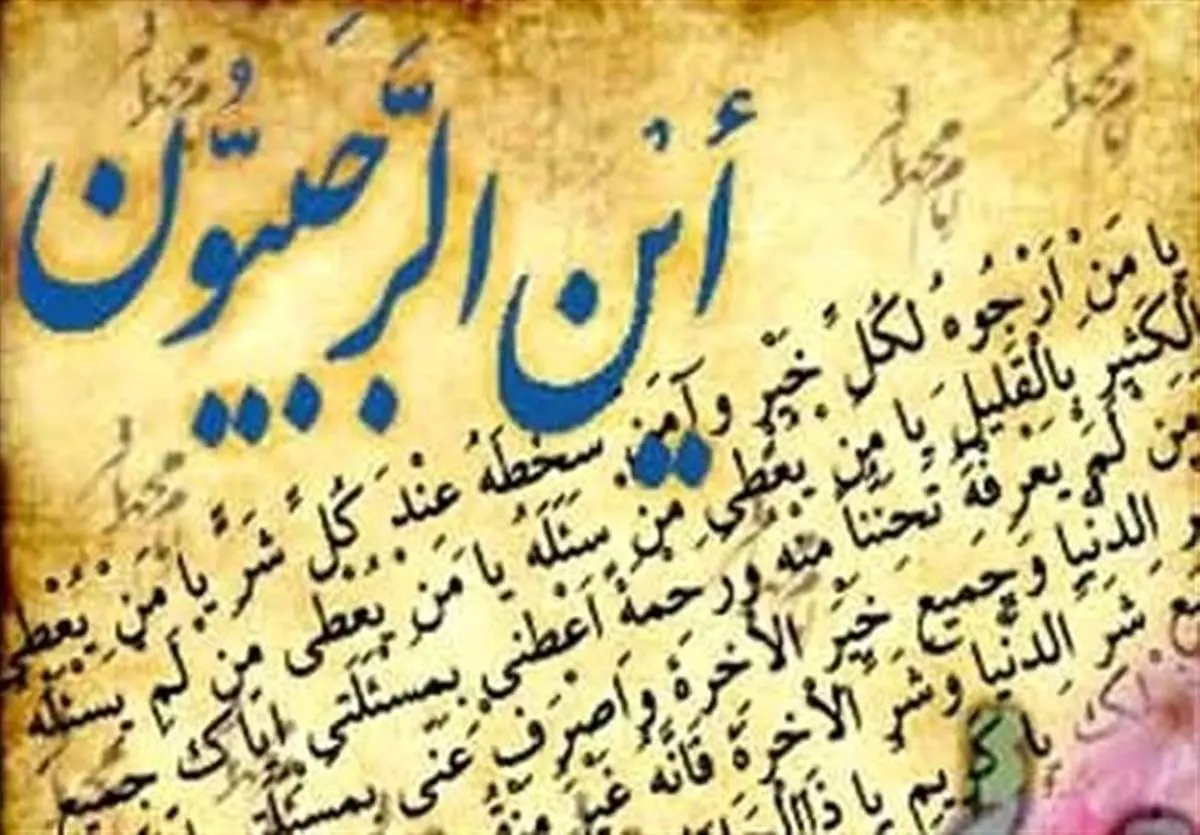 أَيْنَ الرَّجَبِيُّونَ
یا مَنْ اَرْجُوهُ لِكُلِّ خَيْرٍ وَ آمَنُ سَخَطَهُ عِنْدَ كُلِّ شَرٍّ یا مَنْ يُعْطِي
الْكَثِيرَ بِالْقَلِيلِ یا مَنْ يُعْطي مَنْ سَئَلَهُ یا مَنْ يُعْطي مَنْ لَمْ يَسْئَلْهُ
مَنْ لَمْ يَعْرِفْهُ تَحَنُّنًا مِنْهُ وَرَحْمَةً اَعْطِني بِمَسْئَلَتي اِيَّاكَ جَميعَ
الدُّنْيا وَجَميعَ خَيْرِ الْآخِرَةِ وَاصْرِفْ عَنّي بِمَسْئَلَتي
شَرِّ الدُّنْيا وَشَرِّ الْآخِرَةِ فَاِنَّهُ غَيْرُ
یا كَريمُ یا ذَا